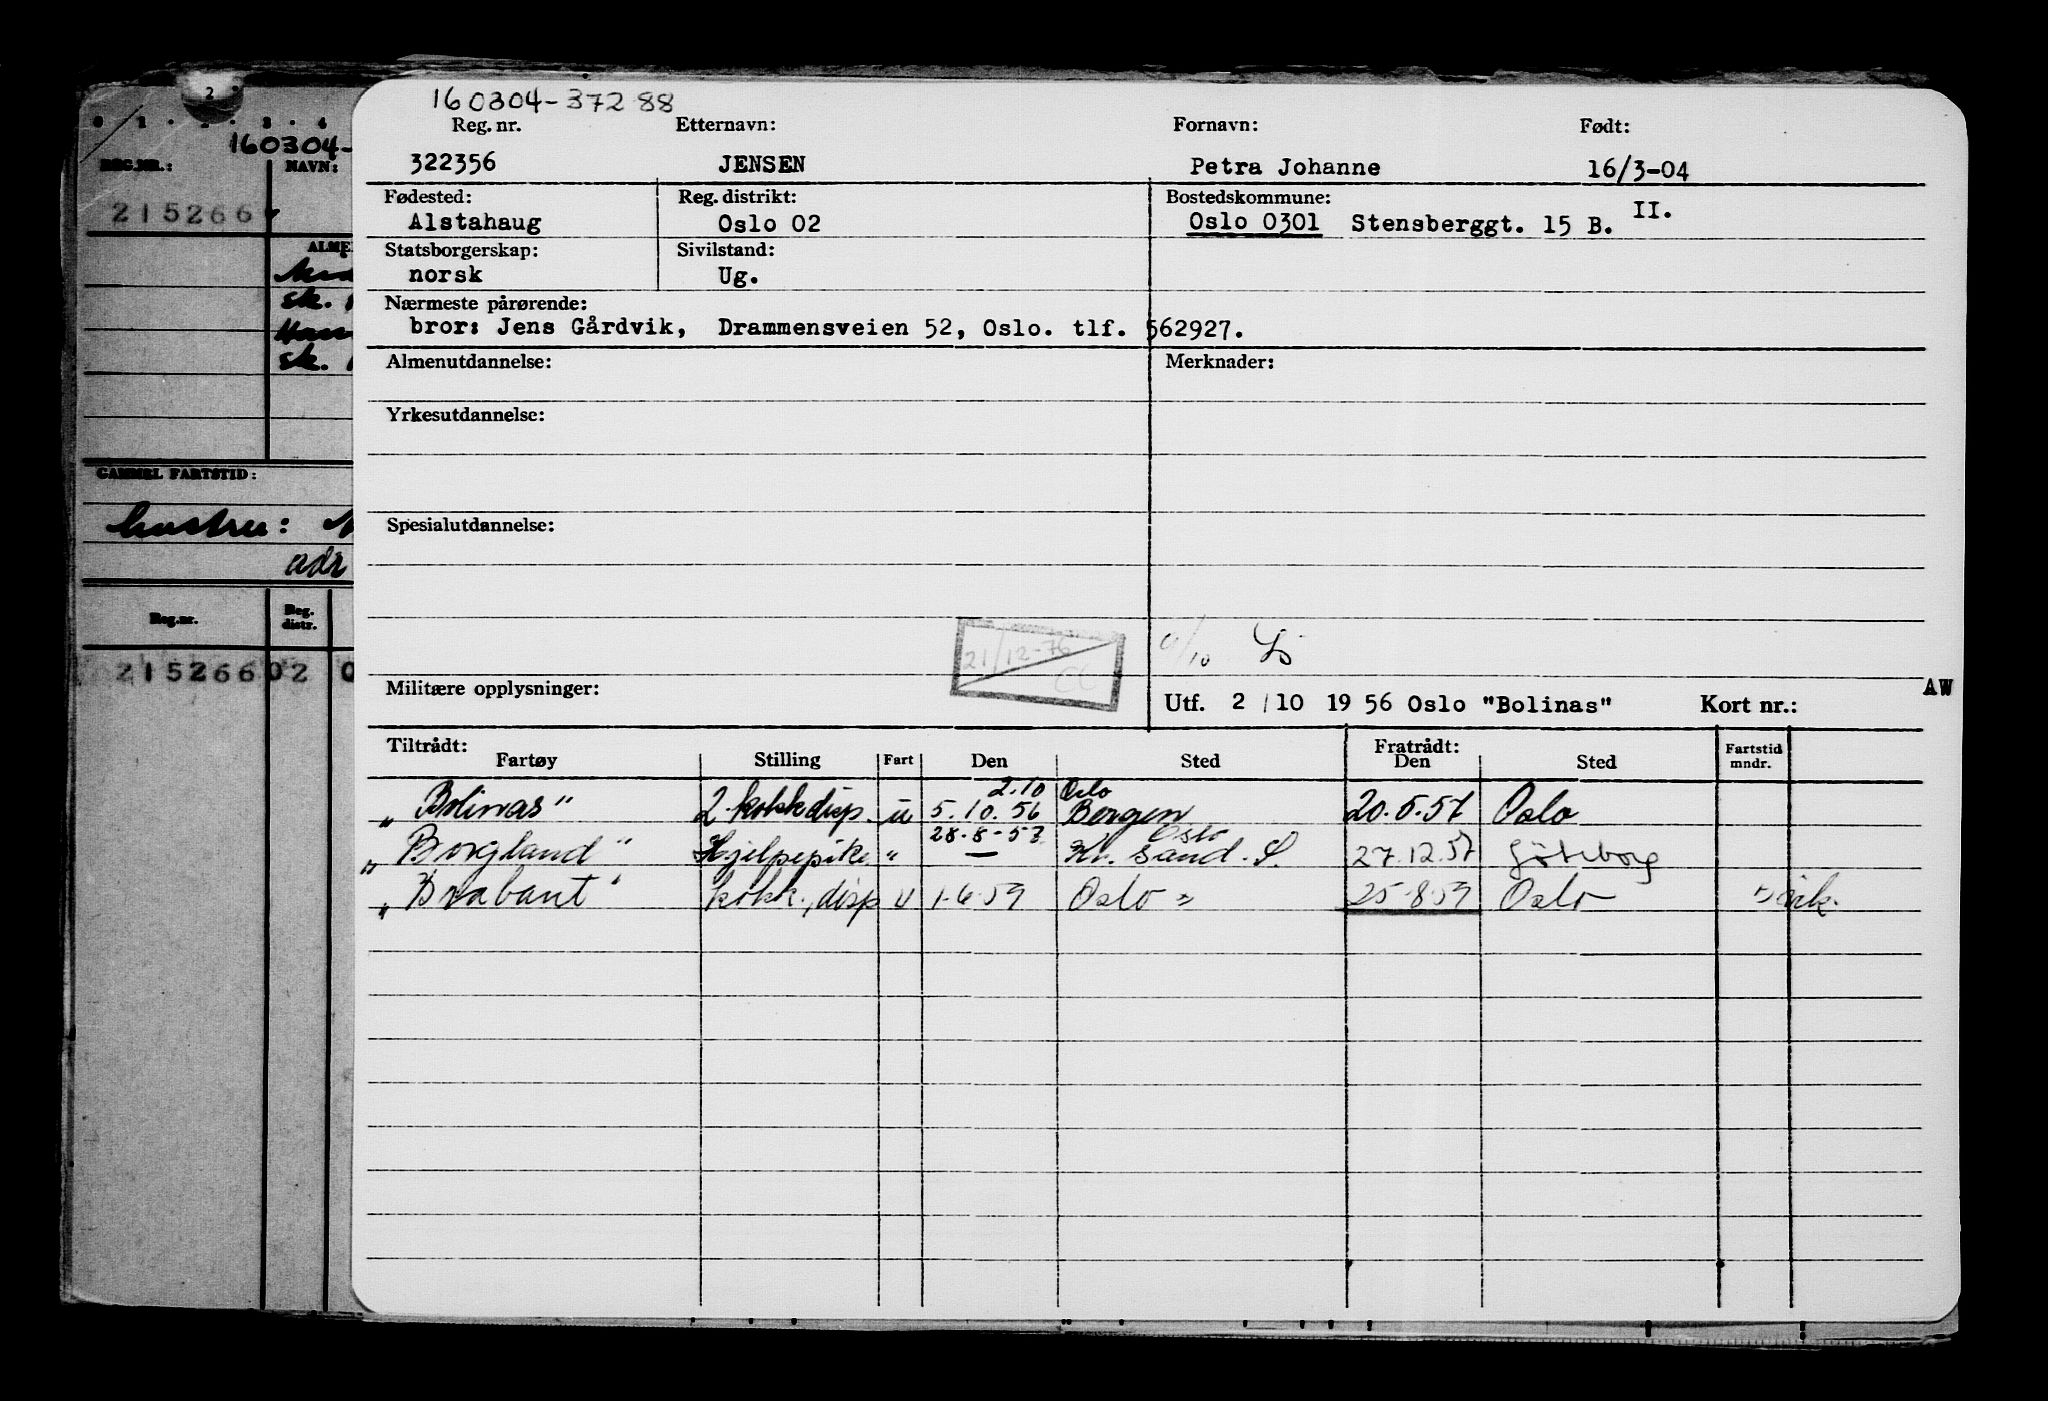 2
0 1 . 2 . 3 . 4
160304-
REG.NR.: NAVN:
215266
ALME
sk.
sk.
GAMMEL FARTSTID:
hustru:
adr
Reg.nr. Reg. distr.
215266 02 0
160304-37288
Reg. nr. Etternavn: Fornavn: Født:
322356 JENSEN Petra Johanne 16/3-04
Fødested: Reg. distrikt: Bostedskommune:
Alstahaug Oslo 02 Oslo 0301 Stensberggt. 15 B. II.
Statsborgerskap: Sivilstand:
norsk Ug.
Nærmeste pårørende:
bror: Jens Gårdvik, Drammensveien 52, Oslo. tlf. 562927.
Almenutdannelse: Merknader:
Yrkesutdannelse:
Spesialutdannelse:
21/12-76
Militære opplysninger:
Utf. 2 / 10 19 56 Oslo "Bolinas" Kort nr.: AW
Tiltrådt: Fratrådt: Fartstid
Fartøy Stilling Fart Den Sted Den Sted mndr.
2.10 Oslo
„Bolinas" 2. kokkdisp. u 5.10.56 Bergen 20.5.57 Oslo
28.8-57 Oslo
„Borgland" Hjelpepike " — Kr. sand. S. 27.12.57 Göteborg
„Brabant" kokk., disp u 1.6.59 Oslo " 25.8.59 Oslo